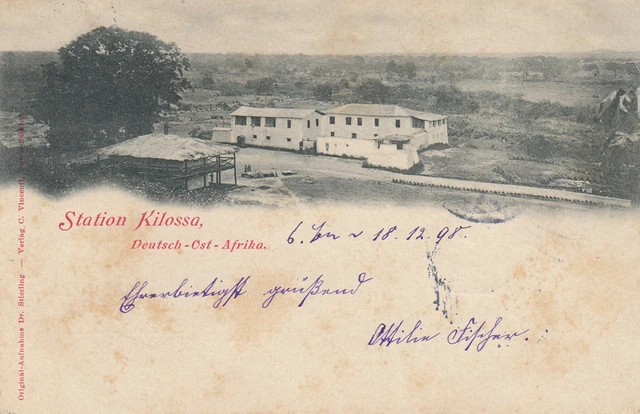 Station Kilossa,
Deutsch-Ost-Afrika.
18. 12. 98.
Ehrerbietigst grüßend
Ottilie Fischer.
Original-Aufnahme Dr. Stierling — Verlag C. Vincenti